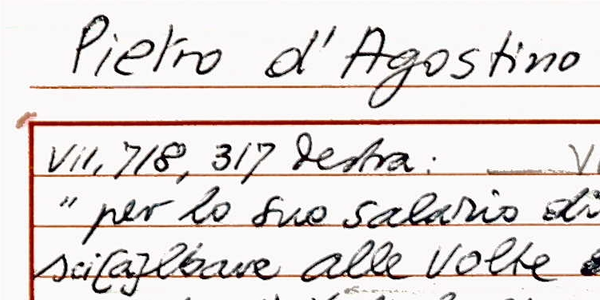 Pietro d'Agostino
VII, 718, 317 destra:
" per lo suo salario di
sci[a]lbare alle volte